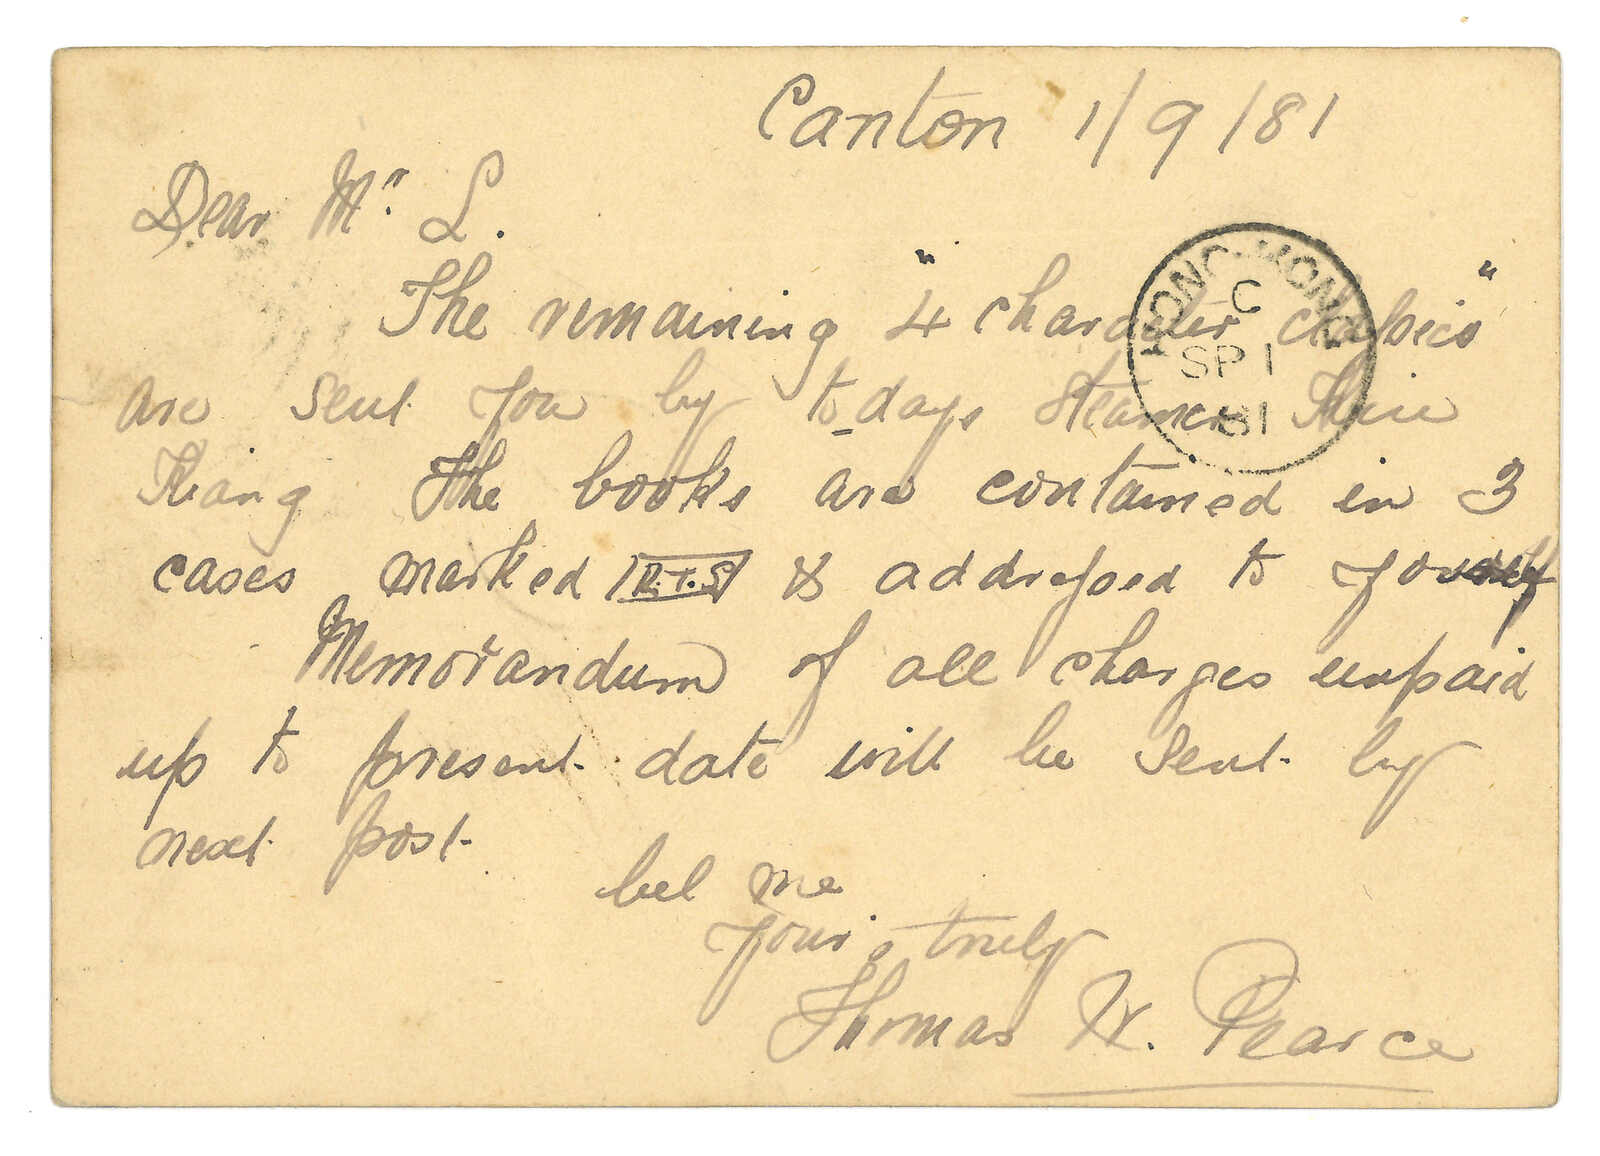 Canton 1/9/81
Dear Mr. L.
The remaining "4 character classics"
are sent you by to-days steamer Kiu
Kiang The books are contained in 3
cases marked R.T.S & addressed to
Memorandum of all charges unpaid
up to present date will be sent by
next post.
bel me
yours truly
Thomas W. Pearce
HONG-KONG
C
SP 1
81